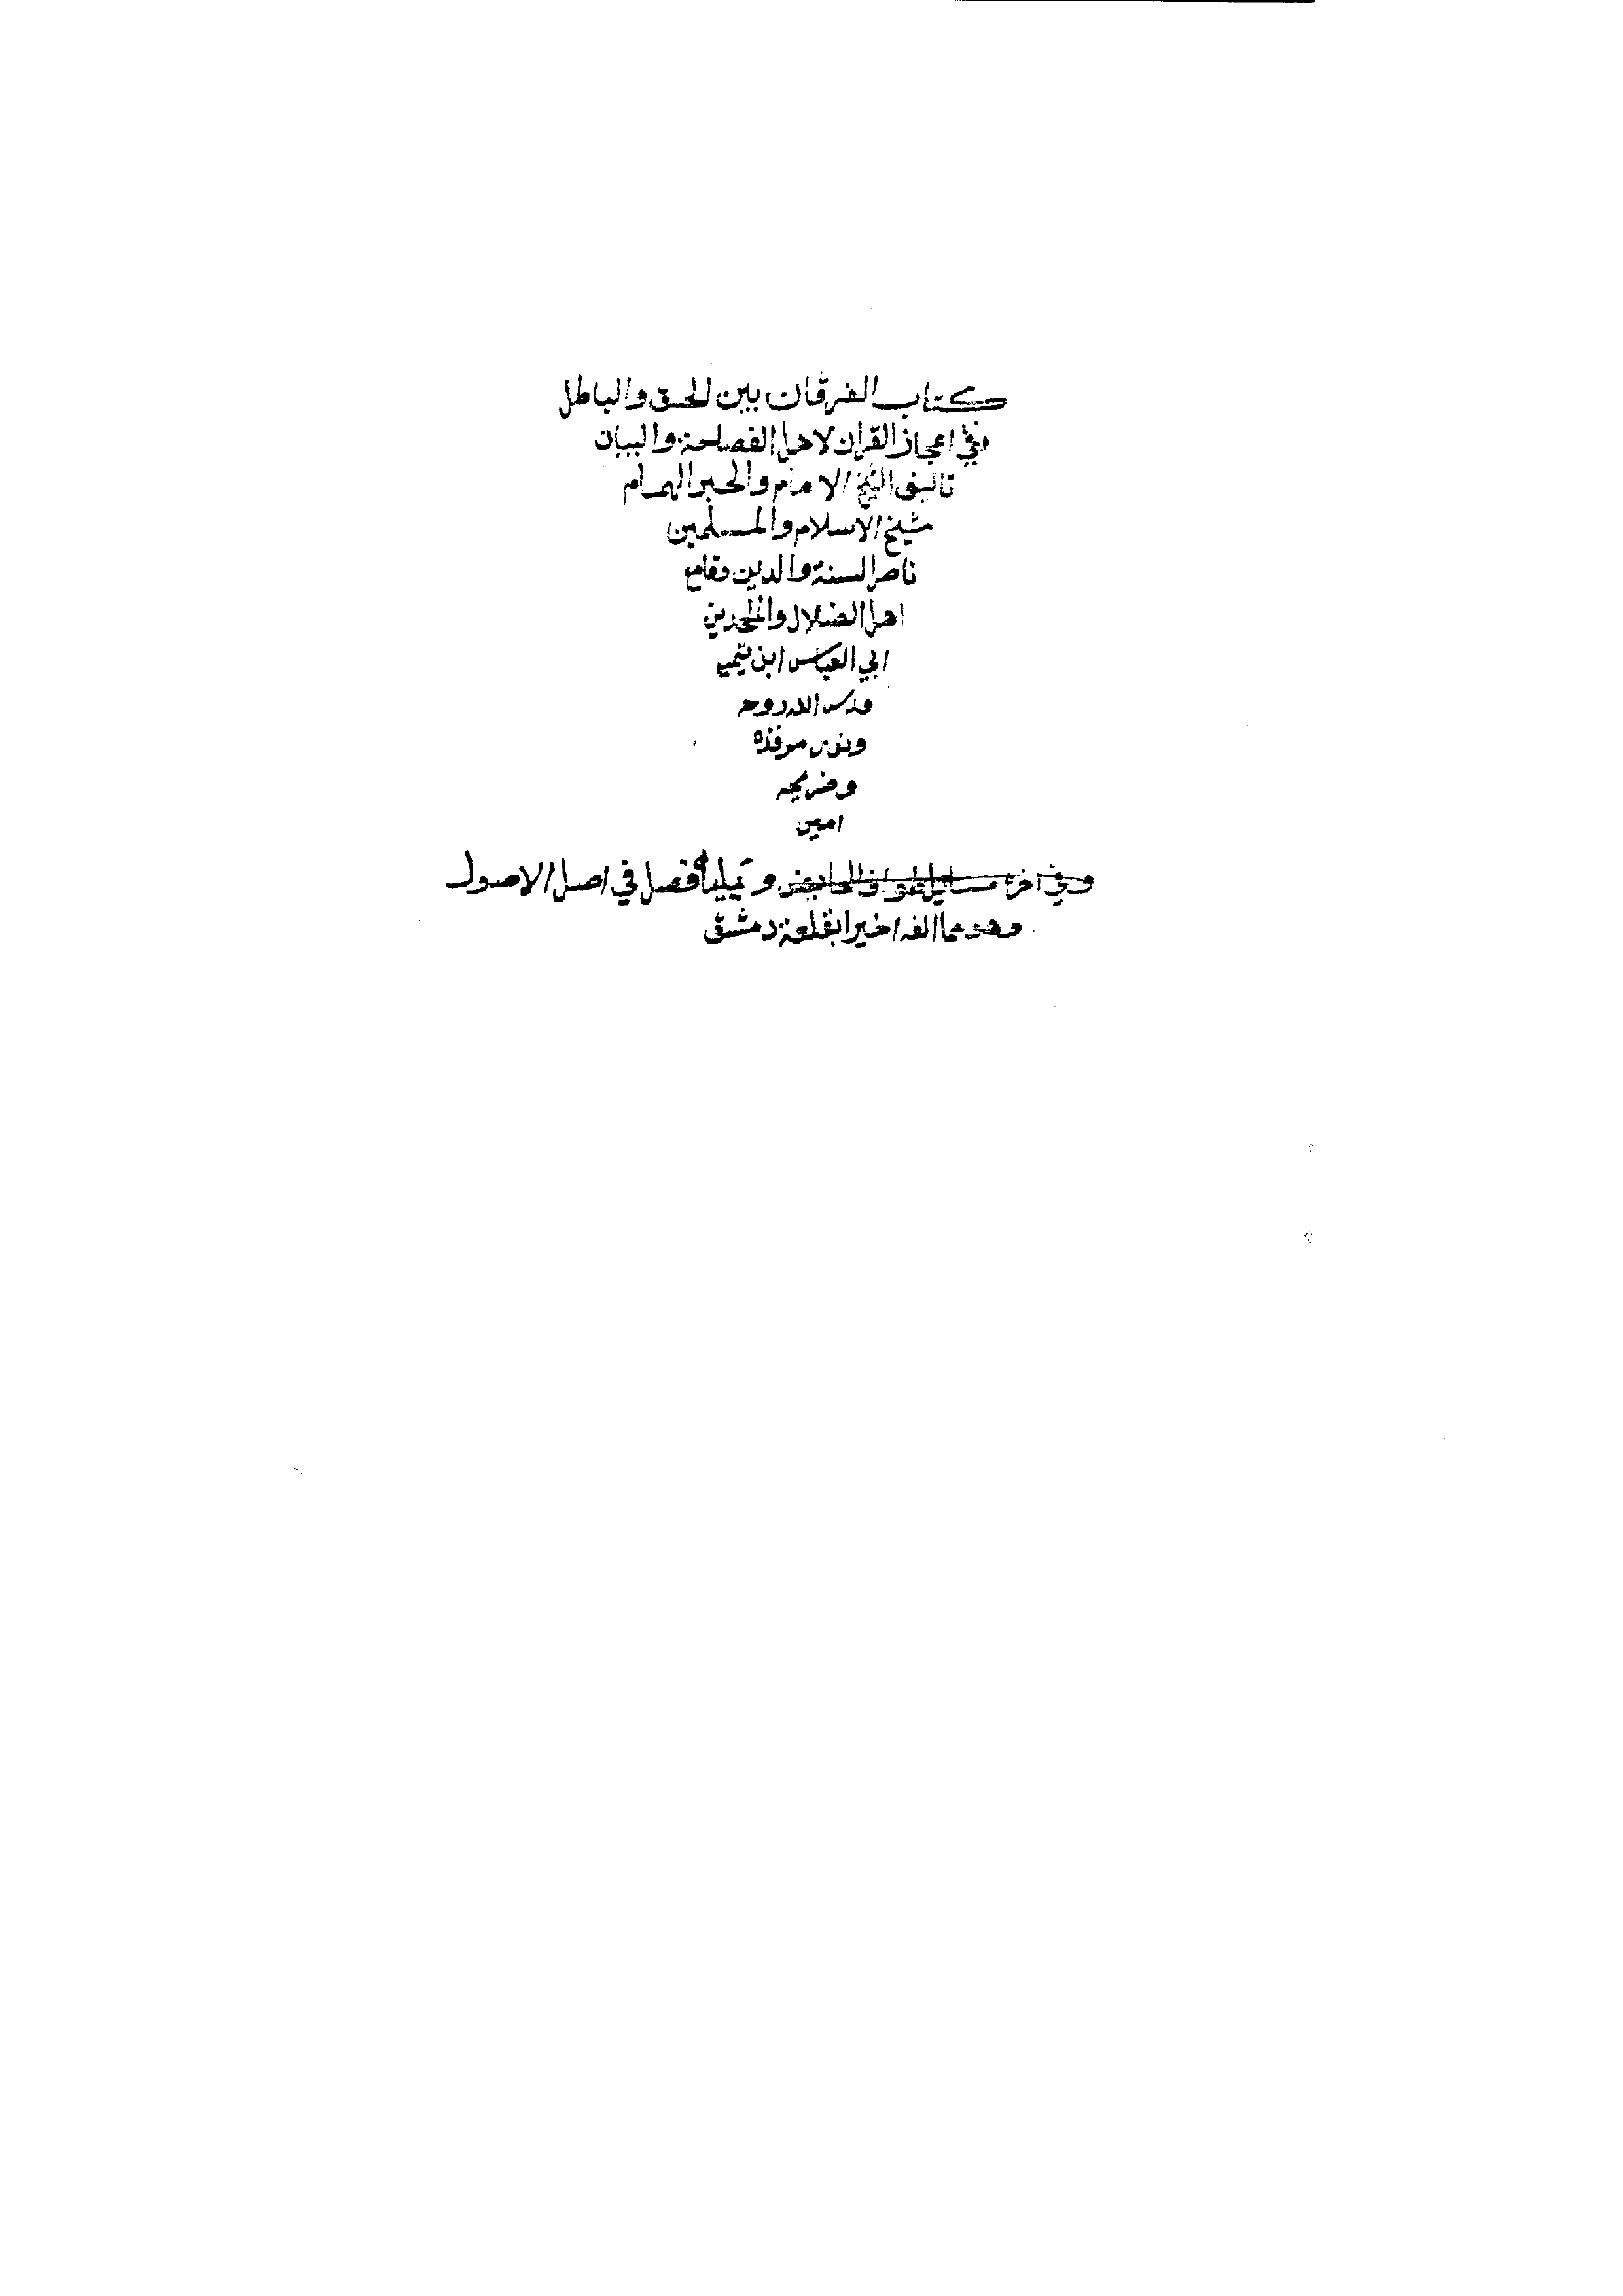 كتاب الفرقان بين الحق والباطل
في اعجاز القران لاهل الفصاحة والبيان
تاليف الشيخ الامام والحبر الهمام
شيخ الاسلام والمسلمين
ناصر السنة والدين وقامع
اهل الضلال والملحدين
ابي العباس ابن تيميه
قدس الله روحه
ونور مرقده
وضريحه
امين
وفي اخره مسايل طواف الحايض ويليها فصل في اصل الاصول
وهو مما الفه اخيرا بقلعة دمشق